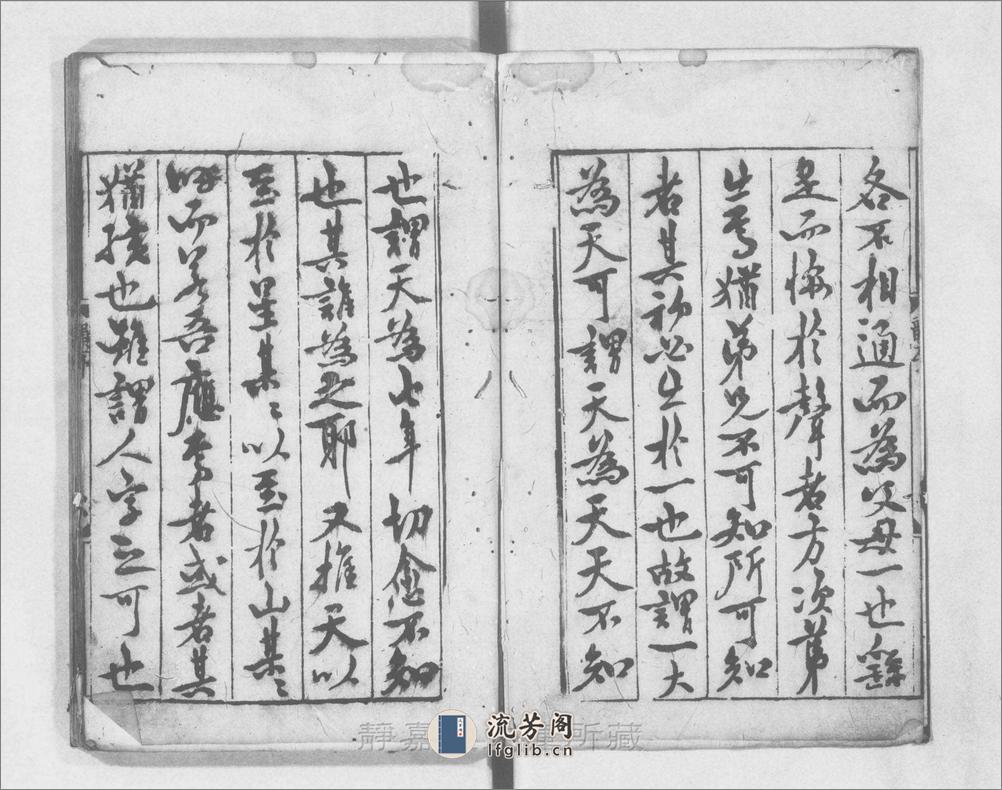 各不相通而為父母一也繇
是而悔於聲者方次第
生焉猶弟兄不可知所可知
者其初必生於一也故謂一大
為天可謂天為天天不知
也謂天為七年切愈不知
也其誰為之耶又推天以
至於星某〻以至於山某〻
呼而吾應焉者或者其
猶孩也雖謂人字之可也
靜嘉
所藏
流芳阁
lfglib.cn